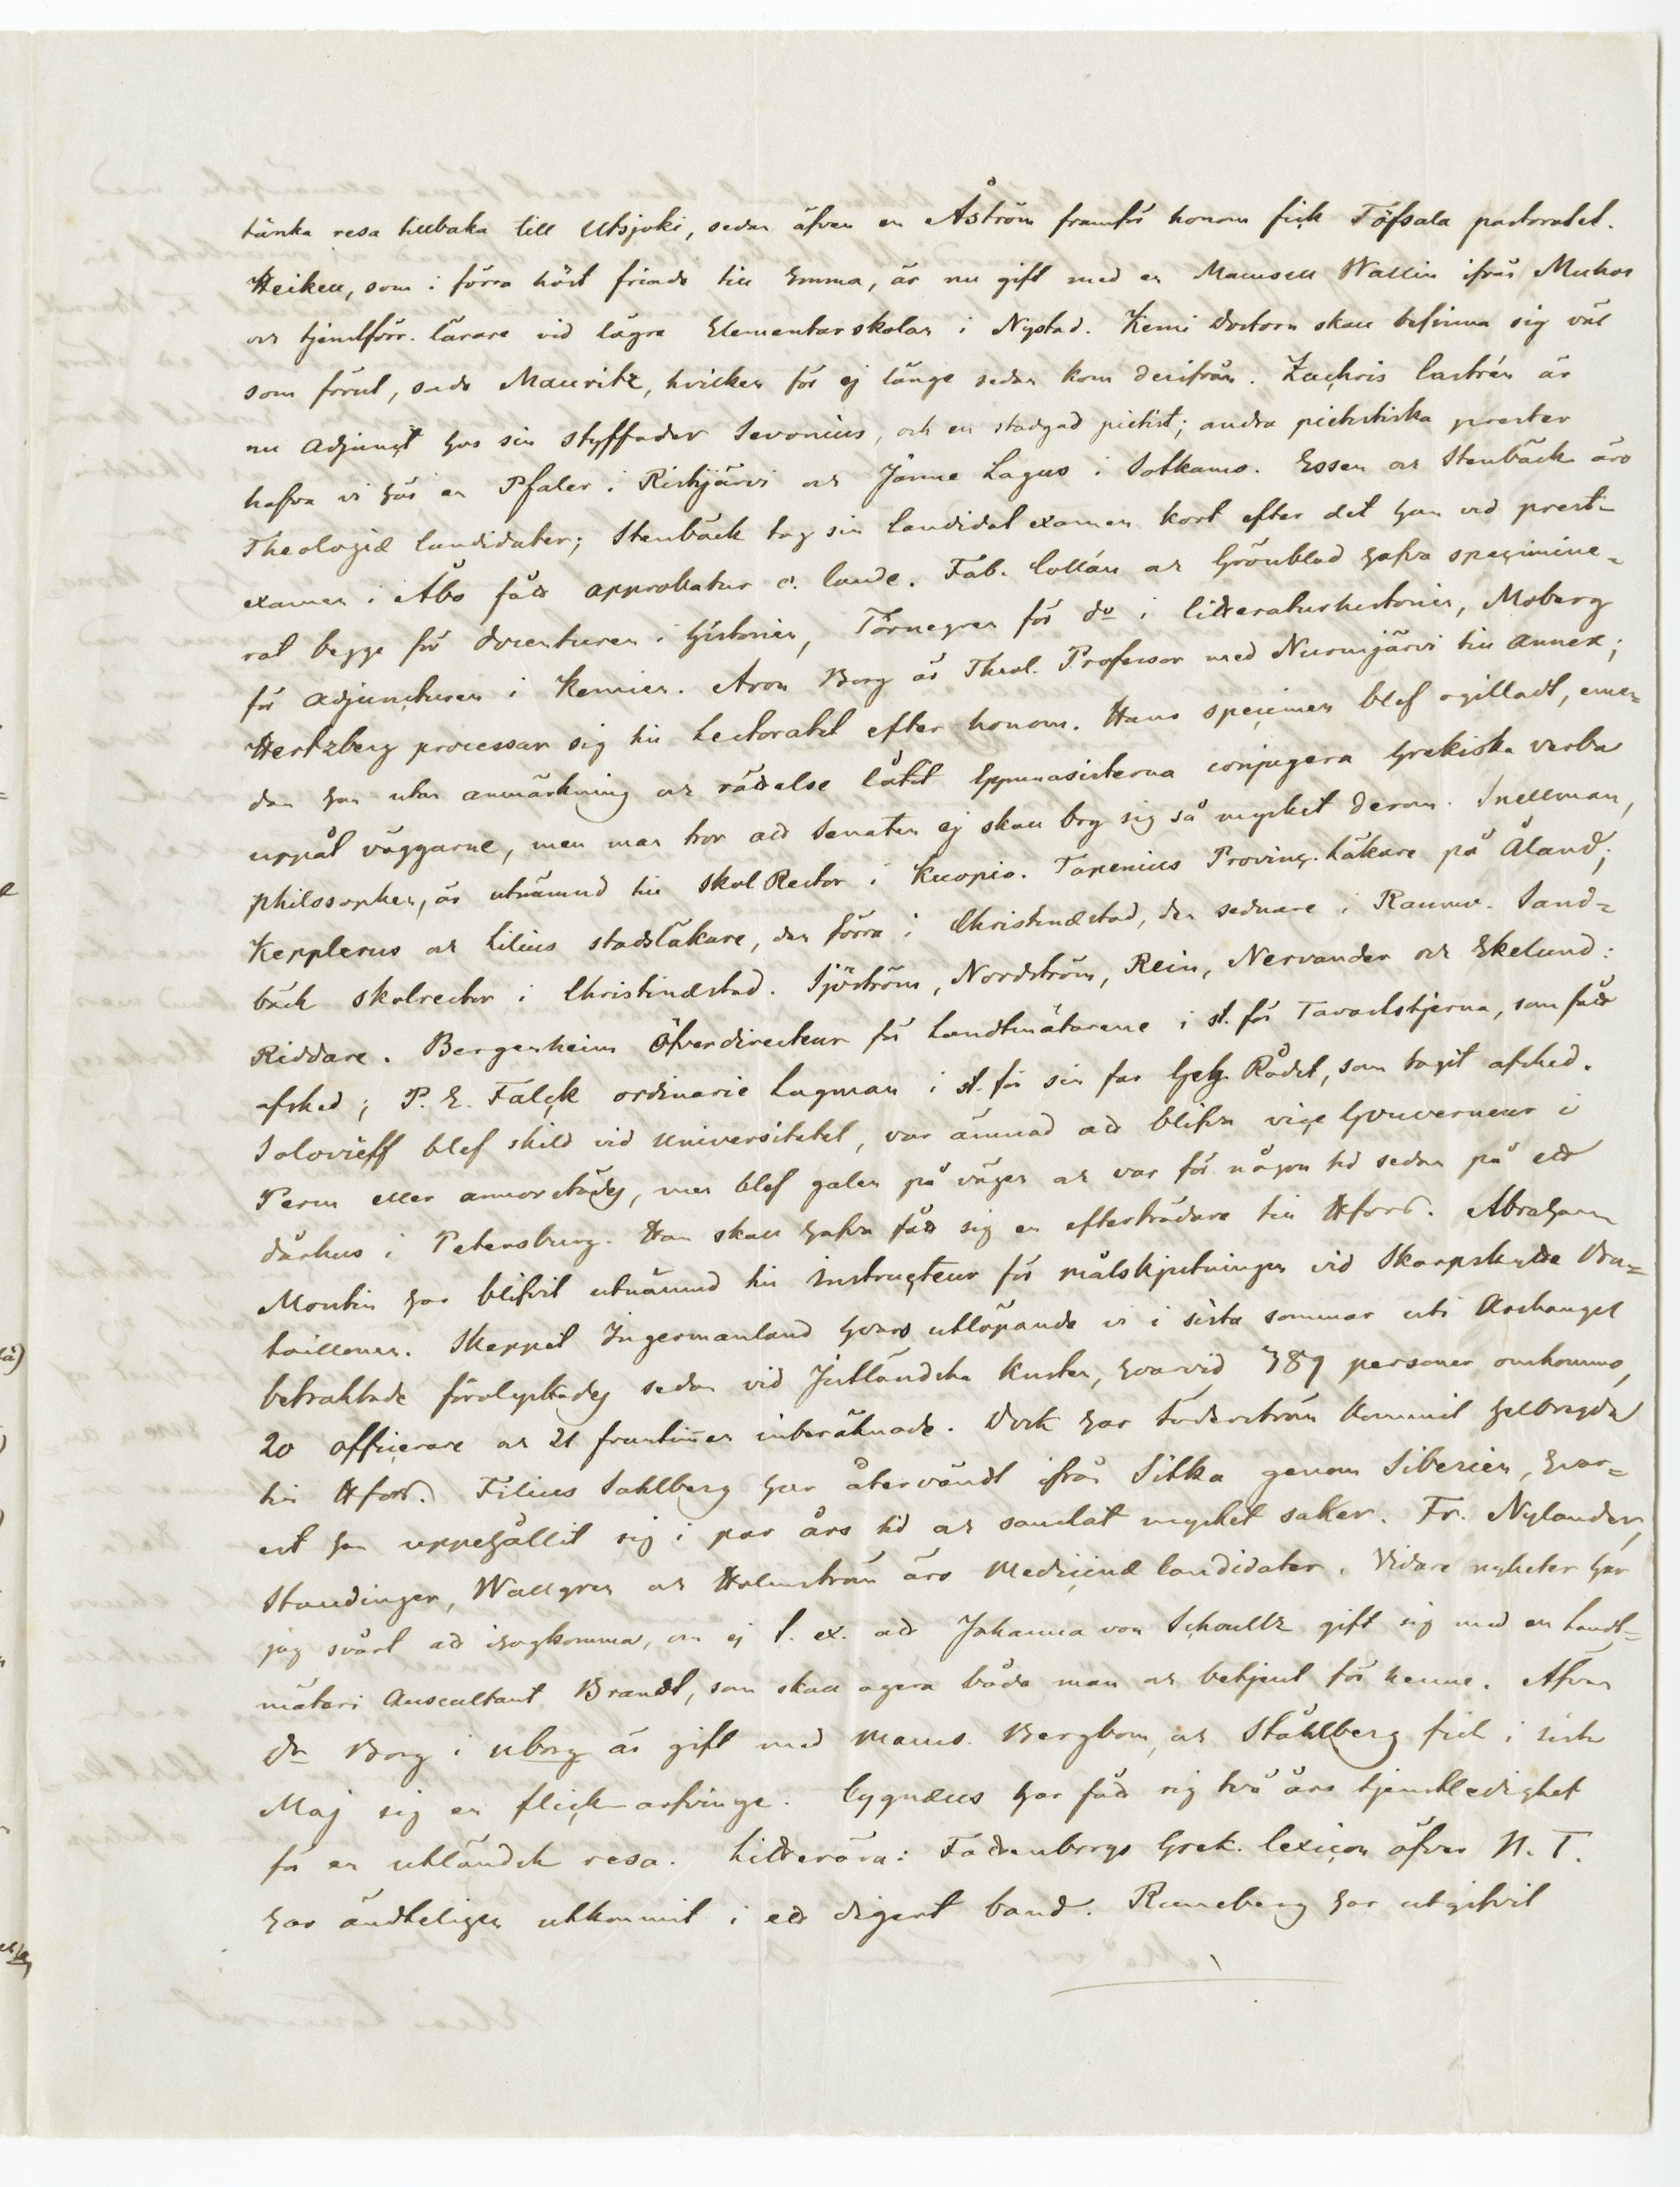 tänka resa tillbaka till Utsjoki, sedan äfven en Åström framför honom fick Töfsala pastoratet.
Heikell, som i förra höst friade till Emma, är nu gift med en Mamsell Wallin ifrån Muhos
och tjenstförr. lärare vid lägre Elementarskolan i Nystad. Kemi Doctorn skall befinna sig väl
som förut, sade Mauritz, hvilken för ej länge sedan kom derifrån. Zachris Castrén är
nu Adjunct hos sin styffader Sevonius, och en stadgad pietist; andra pietistiska prester
hafva vi här en Pfaler i Ristijärvi och Jänne Lagus i Sotkamo. Essen och Stenbäck äro
Theologiæ Candidater; Stenbäck tog sin Candidat examen kort efter det han vid prest-
examen i Åbo fått approbatur c. laude. Fab. Collán och Grönblad hafva specimine-
rat begge för Docenturen i Historien, Törnegren för do i litteraturhistorien, Moberg
för Adjuncturen i Kemien. Aron Borg är Theol. Professor med Nurmijärvi till annex;
Hertzberg processar sig till Lectoratet efter honom. Hans specimen blef ogilladt, eme-
dan han utan anmärkning och rättelse låtit Gymnasisterna conjugera Grekiska verba
uppåt väggarne, men man tror att Senaten ej skall bry sig så mycket derom. Snellman,
philosophen, är utnämnd till Skol Rector i Kuopio. Topenius Provinc. Läkare på Åland;
Kepplerus och Lilius stadsläkare, den förra i Christinæstad, den sednare i Raumo. Sand-
bäck skolrector i Christinæstad. Sjöström, Nordström, Rein, Nervander och Ekelund:
Riddare. Bergenheim Öfverdirecteur för Landtmätarene i st. för Tavaststjerna, som fått
afsked; P. E. Falck ordinarie Lagman i st. för sin far Geh. Rådet, som tagit afsked.
Solovieff blef skild vid Universitetet, var ämnad att blifva vice Gouverneur i
Perm eller annorstädes, men blef galen på vägen och var för någon tid sedan på ett
dårhus i Petersburg. Han skall hafva fått sig en efterträdare till Hfors. Abraham
Montin har blifvit utnämnd till Instructeur för målskjutningen vid Skarpskytte Ba-
taillonen. Skeppet Ingermanland hvars utlöpande vi i sista sommar uti Archangel
betraktade förolyckades sedan vid Jutländska Kusten, hvarvid 389 personer omkommo,
20 officerare och 21 fruntimer inberäknade. Dock har Söderström kommit helbregda
till Hfors. Filius Sahlberg har återvändt ifrån Sitka genom Siberien, hvar-
est han uppehållit sig i par års tid och samlat mycket saker. Fr. Nylander,
Staudinger, Wallgren och Holmström äro Medicinæ Candidater. Vidare nyheter har
jag svårt att ihogkomma, om ej t. ex. att Johanna von Schoultz gift sig med en Landt-
mäteri Auscultant Brandt, som skall agera både man och betjent för henne. Äfven
Dr Borg i Uborg är gift med Mams. Bergbom, och Ståhlberg fick i sista
Maj sig en flick-arfvinge. Cygnæus har fått sig två års tjenstledighet
för en utländsk resa. Litterära: Fattenborgs Grek. lexicon öfver N. T.
har ändteligen utkommit i ett digert band. Runeberg har utgifvit